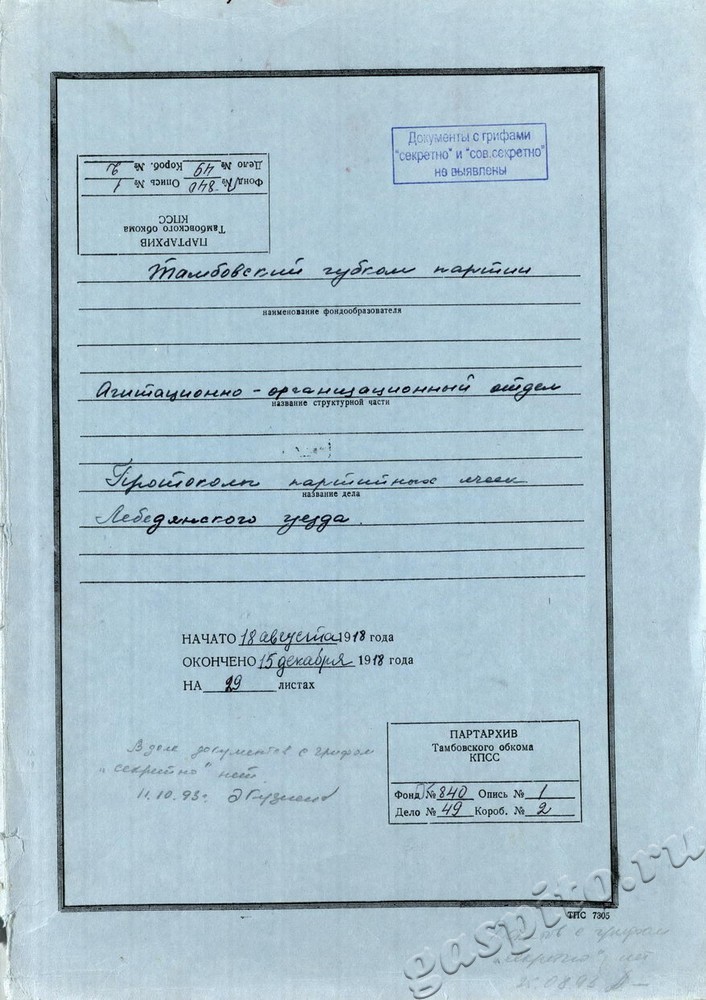 Документы с грифами
"секретно" и "сов.секретно"
не выявлены
ПАРТАРХИВ
Тамбовского обкома
КПСС
Фонд № 840 Опись № 1
Дело № 49 Короб. № 2
Тамбовский губком партии
наименование фондообразователя
Агитационно-организационный отдел
название структурной части
Протоколы партийных ячеек
название дела
Лебедянского уезда.
НАЧАТО 18 августа 1918 года
ОКОНЧЕНО 15 декабря 1918 года
НА 29 листах
В деле документов с грифом
"секретно" нет
11.10.93г.
ПАРТАРХИВ
Тамбовского обкома
КПСС
Фонд № 840 Опись № 1
Дело № 49 Короб. № 2
ТПС 7305
с грифом
"секретно" нет
gaspito.ru